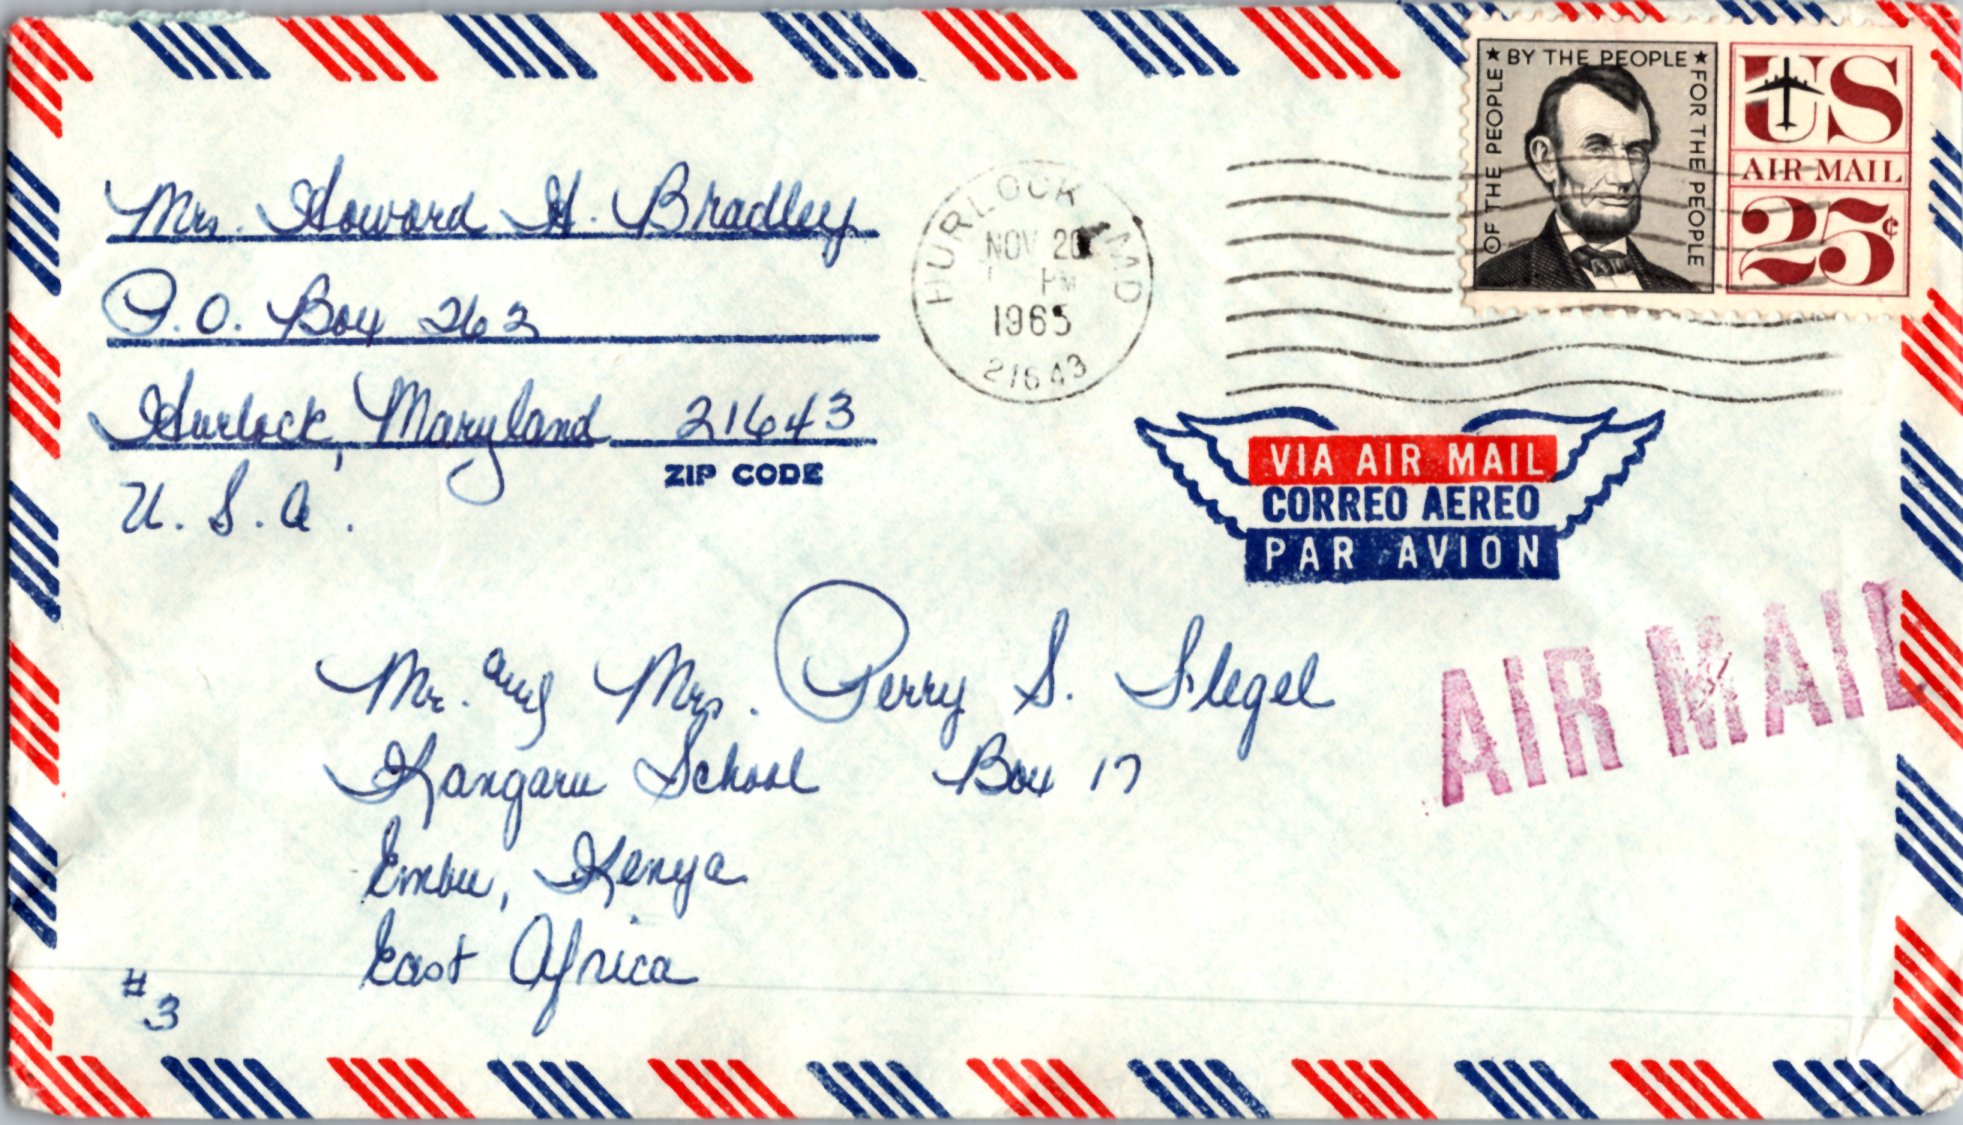 Mrs. Howard H. Bradley
P.O. Box 262
Hurlock, Maryland 21643
ZIP CODE
U. S. A.
HURLOCK MD
NOV 20
PM
1965
21643
OF THE PEOPLE ★ BY THE PEOPLE ★ FOR THE PEOPLE
US
AIR MAIL
25¢
VIA AIR MAIL
CORREO AEREO
PAR AVION
AIR MAIL
Mr. and Mrs. Perry S. Slegel
Kangaru School Box 17
Embu, Kenya
East Africa
#3